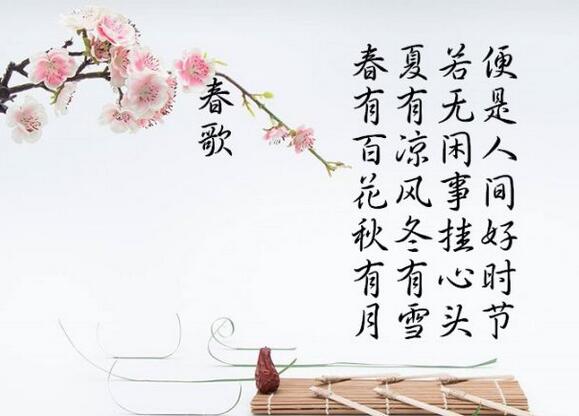 春歌
春有百花秋有月
夏有凉风冬有雪
若无闲事挂心头
便是人间好时节